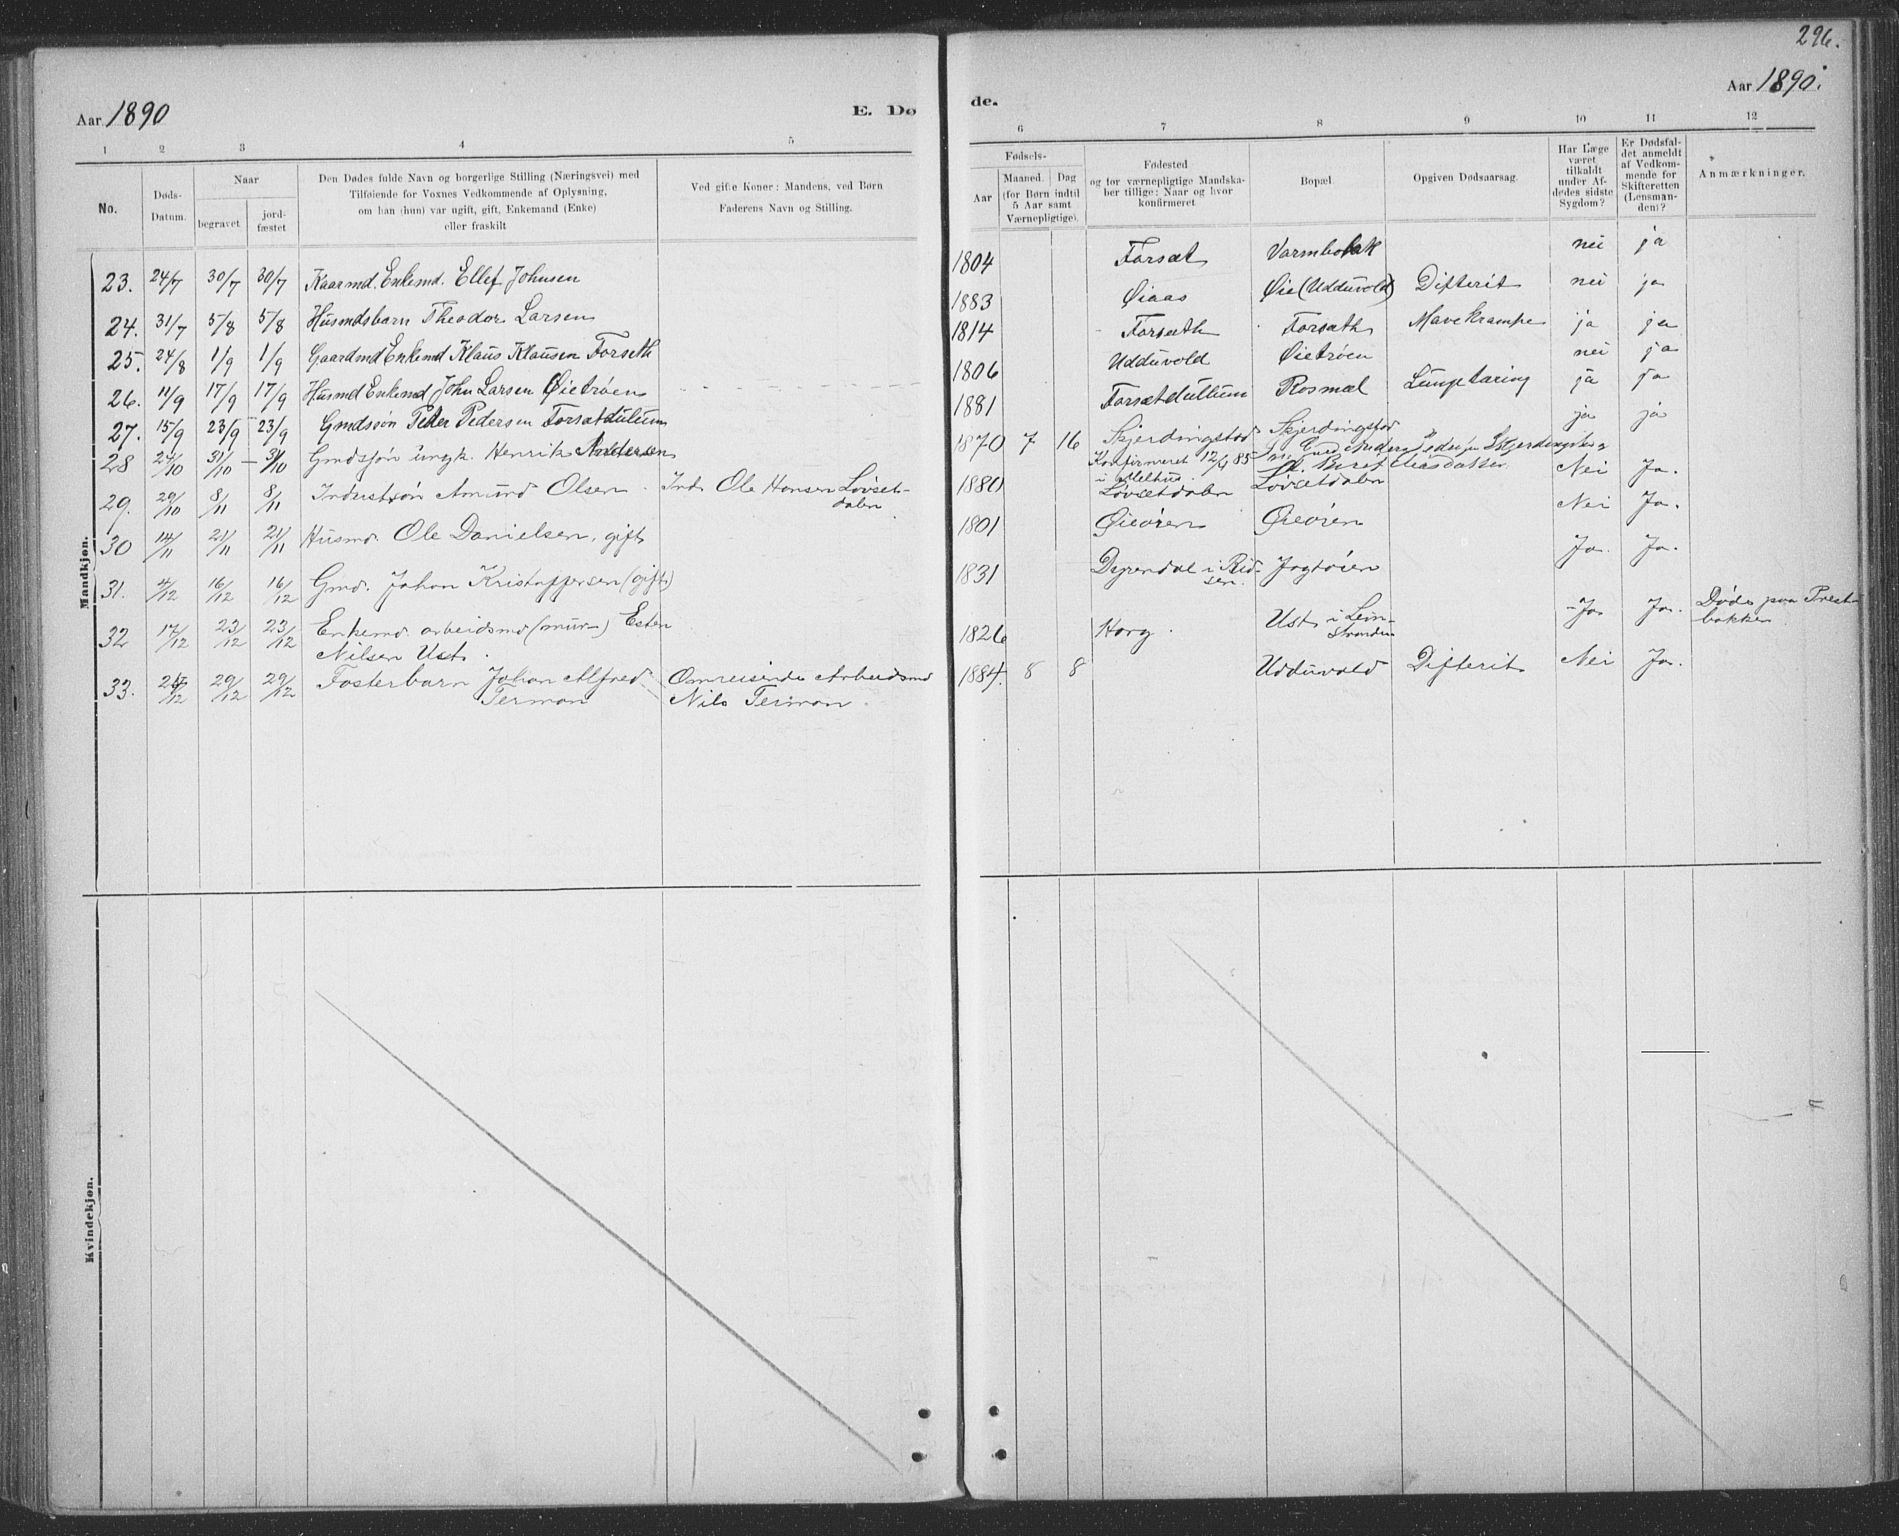 296.
Aar 1890
E. Dø
de.
Aar 1890.
1 2 3 4 5
6 7 8 9 10 11 12
No.
Døds-
Datum.
Naar
begravet
jord-
fæstet
Den Dødes fulde Navn og borgerlige Stilling (Næringsvei) med
Tilføiende for Voxnes Vedkommende af Oplysning,
om han (hun) var ugift, gift, Enkemand (Enke)
eller fraskilt
Ved gifte Koner: Mandens, ved Børn
Faderens Navn og Stilling.
Fødsels-
Aar
Maaned.
Dag
(for Børn indtil
5 Aar samt
Værnepligtige).
Fødested
og for værnepligtige Mandska-
ber tillige: Naar og hvor
konfirmeret
Bopæl.
Opgiven Dødsaarsag.
Har Læge
været
tilkaldt
under Af-
dødes sidste
Sygdom?
Er Dødsfal-
det anmeldt
af Vedkom-
mende for
Skifteretten
(Lensman-
den)?
Anmærkninger.
Mandkjøn.
23. 24/7 30/7 30/7 Kaarmd. Enkemd. Ellef Johnsen
1804 Forsæt nei ja
24. 31/7 5/8 5/8 Husmdsbarn Theodor Larsen
1883 Øiaas Øie (Udduvold) Difterit nei ja
25. 24/8 1/9 1/9 Gaardmd Enkemd Klaus Klausen Forseth
1814 Forsæth Forsæth Mavekrampe ja ja
26. 11/9 17/9 17/9 Husmd Enkemd John Larsen Øietrøen
1806 Udduvold Øietrøen nei ja
27. 15/9 23/9 23/9 Gmdssøn Peder Pedersen Forsætdullum
1881 Forsætdullum Rosmæl Lungetæring ja ja
28 24/10 31/10 31/10 Gmdssøn ungk. Henrik Andersen
1870 7 16 Skjerdingstad Skjerdingstad ja ja
Konfirmeret 12/4 85
i Melhus
29. 29/10 8/11 8/11 Industsøn Amund Olsen Ind. Ole Hansen Løvset-
dalen
1880 Løvsetdalen Løvsetdalen Nei Ja.
30 14/11 21/11 21/11 Husmd. Ole Danielsen, gift
1801 Øieøren Øieøren Nei Ja.
31. 4/12 16/12 16/12 Gmd. Johan Kristoffersen (gift)
1831 Dyrendal i Rid-
sen. Jagtøien Ja. Ja.
32 17/12 23/12 23/12 Enkemd. arbeidsmd (mur-) Esten
Nilsen Ust.
1826 Horg. Ust i Lein-
stranden Ja Ja. Døde paa Prest-
bakken
33. 29/12 29/12 Fosterbarn Johan Alfred
Terman
Omreisende Arbeidsmd
Nils Terman.
1884. 8 8 Udduvold Difterit Nei Ja.
Kvindekjøn.